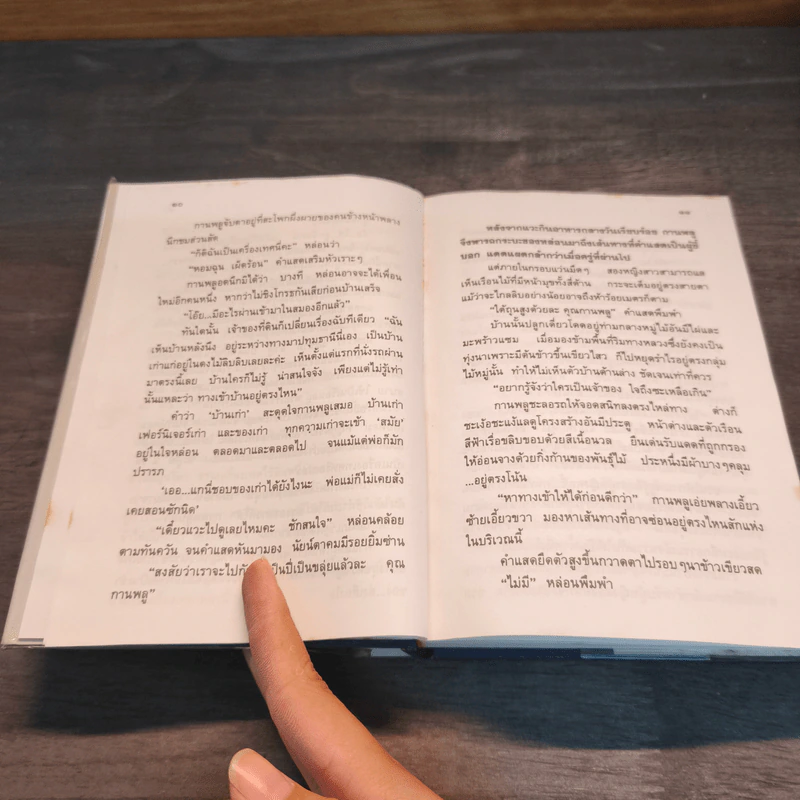 ๑๐
กานพลูจับตาอยู่ที่สะโพกผึ่งผายของคนข้างหน้าพลาง
นึกชมส่วนสัด
"ก็ดีฉันเป็นเครื่องเทศนี่คะ" หล่อนว่า
"หอมฉุน เผ็ดร้อน" คำแสดเสริมหัวเราะๆ
กานพลูอดนึกมิได้ว่า บางที หล่อนอาจจะได้เพื่อน
ใหม่อีกคนหนึ่ง หากว่าไม่ชิงโกรธกันเสียก่อนบ้านเสร็จ
"โอ๊ย...มีอะไรผ่านเข้ามาในสมองอีกแล้ว"
ทันใดนั้น เจ้าของที่ดินก็เปลี่ยนเรื่องฉับทีเดียว "ฉัน
เห็นบ้านหลังนึง อยู่ระหว่างทางมาปทุมธานีนี่เอง เป็นบ้าน
เก่าแก่อยู่ในดงไม้ลิบลิบเลยละค่ะ เห็นตั้งแต่แรกที่นั่งรถผ่าน
มาตรงนี้เลย บ้านใครก็ไม่รู้ น่าสนใจจัง เพียงแต่ไม่รู้เท่า
นั้นแหละว่า ทางเข้าบ้านอยู่ตรงไหน"
คำว่า 'บ้านเก่า' สะดุดใจกานพลูเสมอ บ้านเก่า
เฟอร์นิเจอร์เก่า และของเก่า ทุกความเก่าจะเข้า 'สมัย'
อยู่ในใจหล่อน ตลอดมาและตลอดไป จนแม้แต่พ่อก็มัก
ปรารภ
'เออ...แกนี่ชอบของเก่าได้ยังไงนะ พ่อแม่ก็ไม่เคยสั่ง
เคยสอนซักนิด'
"เดี๋ยวแวะไปดูเลยไหมคะ ชักสนใจ" หล่อนคล้อย
ตามทันควัน จนคำแสดหันมามอง นัยน์ตาคมมีรอยยิ้มซ่าน
"สงสัยว่าเราจะไปกั เป็นปี่เป็นขลุ่ยแล้วละ คุณ
กานพลู"
๑๑
หลังจากแวะกินอาหารกลางวันเรียบร้อย กานพลู
จึงพารถกระบะของหล่อนมาถึงเส้นทางที่คำแสดเป็นผู้ชี้
บอก แดดแผดกล้ากว่าเมื่อครู่ที่ผ่านไป
แต่ภายในกรอบแว่นมืดๆ สองหญิงสาวสามารถแล
เห็นเรือนไม้ที่มีหน้ามุขทั้งสี่ด้าน กระจะเต็มอยู่ตรงสายตา
แม้ว่าจะไกลลิบอย่างน้อยอาจถึงห้าร้อยเมตรก็ตาม
"ใต้ถุนสูงด้วยละ คุณกานพลู" คำแสดพึมพำ
บ้านนั้นปลูกเดี่ยวโดดอยู่ท่ามกลางหมู่ไม้อันมีไผ่และ
มะพร้าวแซม เมื่อมองข้ามพื้นที่ริมทางหลวงซึ่งยังคงเป็น
ทุ่งนาเพราะมีต้นข้าวขึ้นเขียวไสว ก็ไปหยุดว่าไรอยู่ตรงกลุ่ม
ไม้หมู่นั้น ทำให้ไม่เห็นตัวบ้านด้านล่าง ชัดเจนเท่าที่ควร
"อยากรู้จังว่าใครเป็นเจ้าของ ใจถึงซะเหลือเกิน"
กานพลูชะลอรถให้จอดสนิทลงตรงไหล่ทาง ต่างก็
ชะเง้อชะแง้แลดูโครงสร้างอันมีประตู หน้าต่างและตัวเรือน
สีฟ้าเรื่อขลิบขอบด้วยสีเนื้อนวล ยืนเด่นรับแดดที่ถูกกรอง
ให้อ่อนจางด้วยกิ่งก้านของพันธุ์ไม้ ประหนึ่งมีผ้าบางๆคลุม
...อยู่ตรงโน้น
"หาทางเข้าให้ได้ก่อนดีกว่า" กานพลูเอ่ยพลางเอี้ยว
ซ้ายเอี้ยวขวา มองหาเส้นทางที่อาจซ่อนอยู่ตรงไหนสักแห่ง
ในบริเวณนี้
คำแสดยืดตัวสูงขึ้นกวาดตาไปรอบๆนาข้าวเขียวสด
"ไม่มี" หล่อนพึมพำ